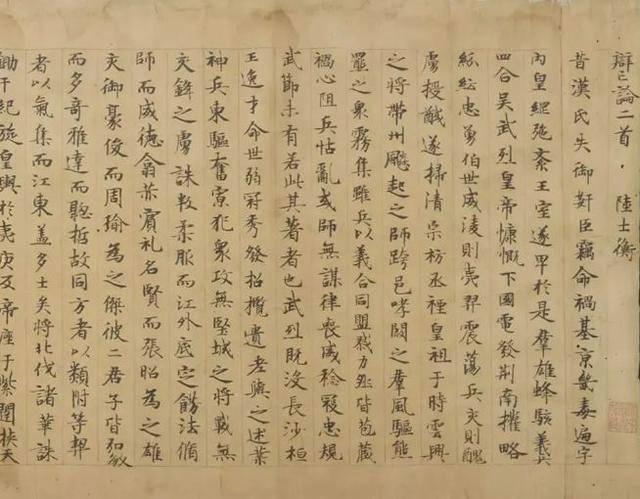 辯亡論二首 陸士衡
昔漢氏失御奸臣竊命禍基京畿毒遍宇
內皇綱弛紊王室遂卑於是羣雄蜂駭義兵
四合吳武烈皇帝慷慨下國電發荊南權略
紛紜忠勇伯世威淩則夷羿震蕩兵交則醜
虜授馘遂掃清宗祊丞禋皇祖于時雲興
之將帶州飈起之師跨邑哮闞之羣風驅熊
羆之衆霧集雖兵以義合同盟戮力然皆苞藏
禍心阻兵怙亂或師無謀律喪威稔寇忠規
武節未有若此其著者也武烈既沒長沙桓
王逸才命世弱冠秀發招攬遺老與之述業
神兵東驅奮寡犯衆攻無堅城之將戰無
交鋒之虜誅叛柔服而江外底定飭法脩
師而威德翕赫賓礼名賢而張昭為之雄
交御豪俊而周瑜為之傑彼二君子皆弘敏
而多奇雅達而聰哲故同方者以類附等契
者以氣集而江東蓋多士矣將北伐諸華誅
鋤干紀旋皇輿於夷庚反帝座于紫闥挾天